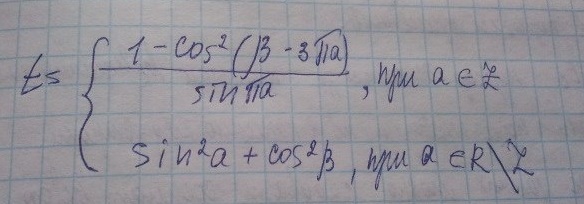 1 - cos²(β - 3πa)
t = { sin πa , при a ∈ Z
sin²a + cos²β, при a ∈ R\Z